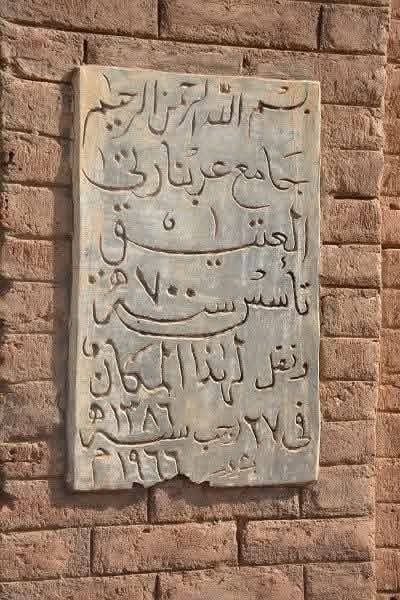 بسم الله الرحمن الرحيم
جامع عربنارتي
العتيق
تأسس سنة ٧٠٠ هـ
ونقل لهذا المكان
في ٢٧ رجب سنة ١٣٨٦ هـ
١٩٦٦ م